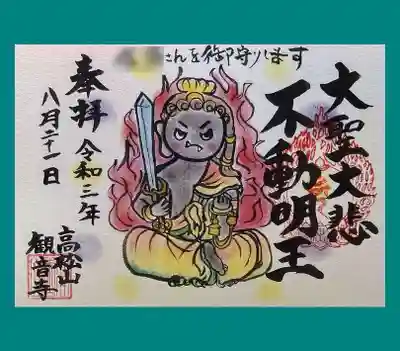 さんを御守りします
大聖大悲
不動明王
奉拝
令和三年
八月二十一日
高松山
観音寺